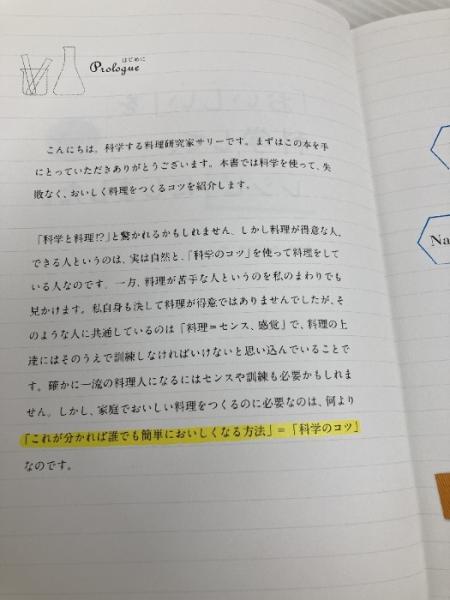 はじめに
Prologue
こんにちは。科学する料理研究家サリーです。まずはこの本を手
にとっていただきありがとうございます。本書では科学を使って、失
敗なく、おいしく料理をつくるコツを紹介します。
「科学と料理!?」と驚かれるかもしれません。しかし料理が得意な人、
できる人というのは、実は自然と、「科学のコツ」を使って料理をして
いる人なのです。一方、料理が苦手な人というのを私のまわりでも
見かけます。私自身も決して料理が得意ではありませんでしたが、そ
のような人に共通しているのは「料理＝センス、感覚」で、料理の上
達にはそのうえで訓練しなければいけないと思い込んでいることで
す。確かに一流の料理人になるにはセンスや訓練も必要かもしれま
せん。しかし、家庭でおいしい料理をつくるのに必要なのは、何より
「これが分かれば誰でも簡単においしくなる方法」＝「科学のコツ」
なのです。
Na